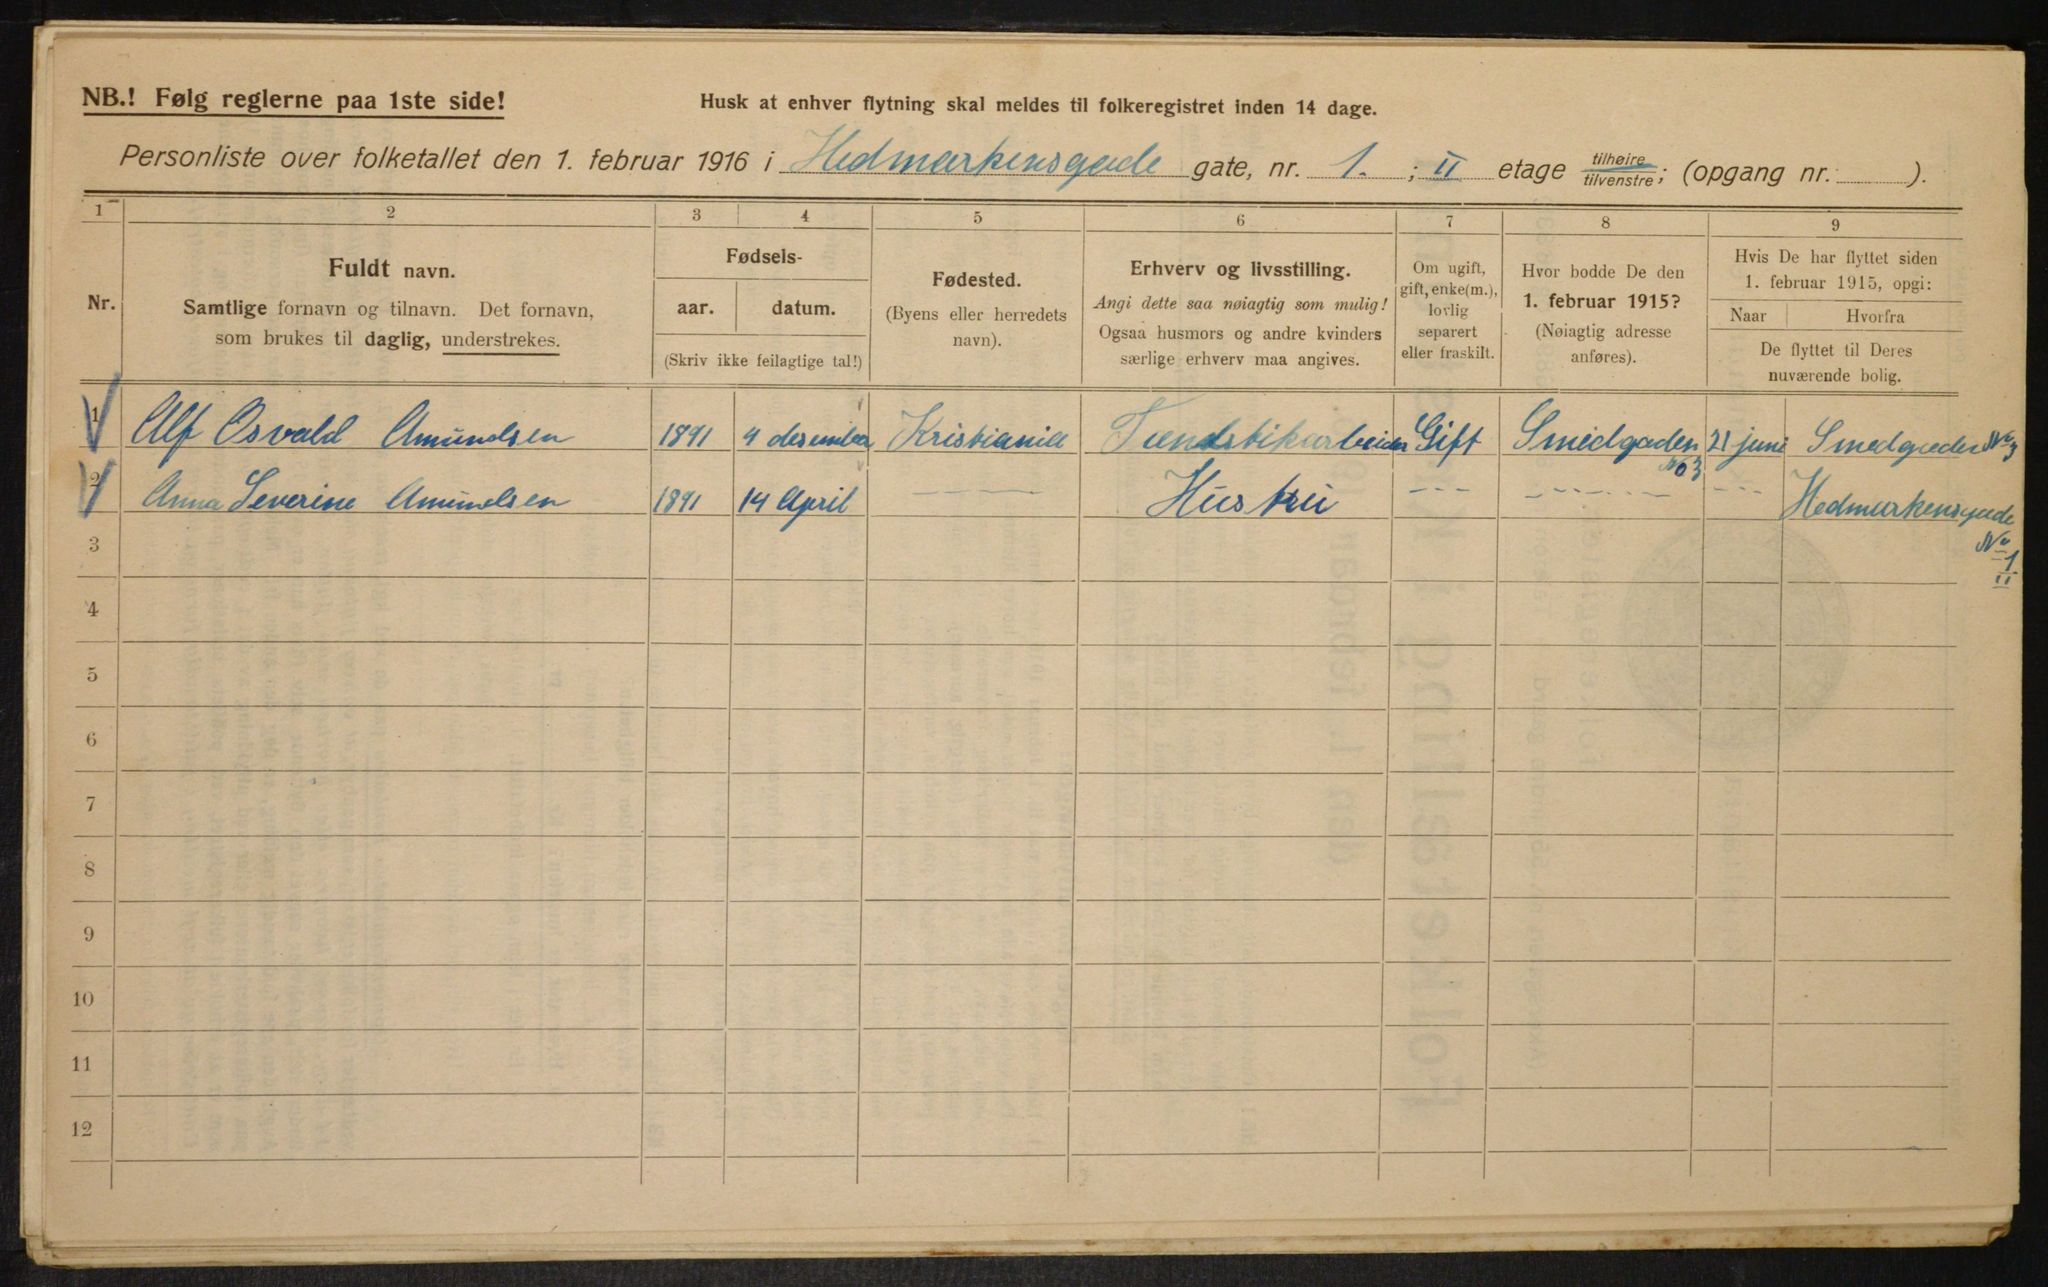 NB.! Følg reglerne paa 1ste side!
Husk at enhver flytning skal meldes til folkeregistret inden 14 dage.
Personliste over folketallet den 1. februar 1916 i Hedmarkensgade gate, nr. 1. ; II etage tilhøire/tilvenstre; (opgang nr. ).
1 2 3 4 5 6 7 8 9
Nr.
Fuldt navn.
Samtlige fornavn og tilnavn. Det fornavn,
som brukes til daglig, understrekes.
Fødsels-
aar. datum.
(Skriv ikke feilagtige tal!)
Fødested.
(Byens eller herredets
navn).
Erhverv og livsstilling.
Angi dette saa nøiagtig som mulig!
Ogsaa husmors og andre kvinders
særlige erhverv maa angives.
Om ugift,
gift, enke(m.),
lovlig
separert
eller fraskilt.
Hvor bodde De den
1. februar 1915?
(Nøiagtig adresse
anføres).
Hvis De har flyttet siden
1. februar 1915, opgi:
Naar Hvorfra
De flyttet til Deres
nuværende bolig.
1 Alf Osvald Amundsen 1891 4 desember Kristiania Tændstikarbeider Gift Smedgaden No 3 21 juni Smedgaden No 3
2 Anna Severine Amundsen 1891 14 April — Hustru --- --- --- Hedmarkensgade
No 1
II
3
4
5
6
7
8
9
10
11
12